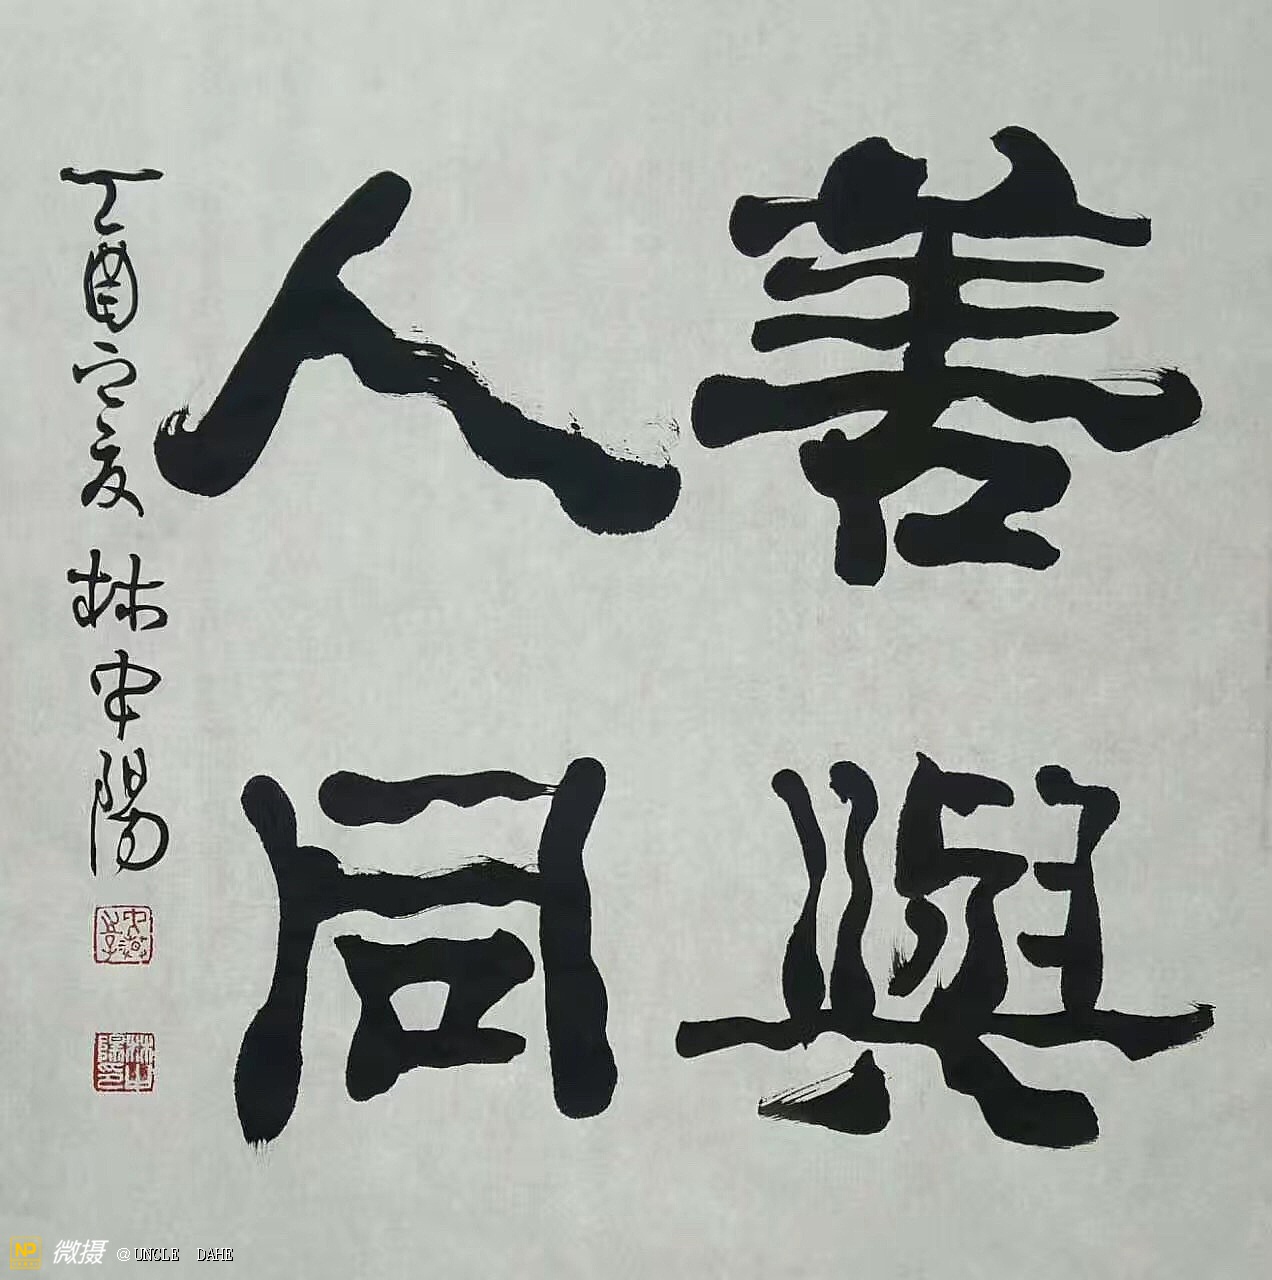 善與
人同
丁酉之夏 林中陽
林中陽印
NP 微摄 @UNCLE DAHE